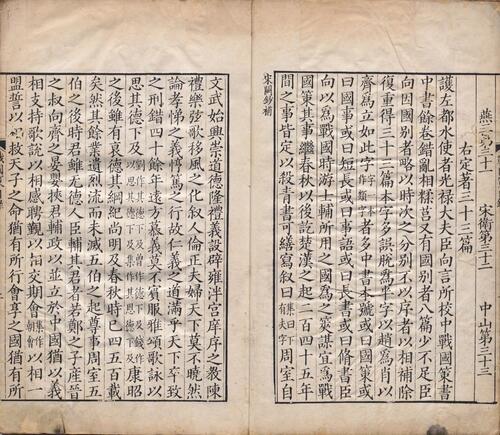 燕三第三十一 宋衛第三十二 中山第三十三
右定著三十三篇
護左都水使者光祿大夫臣向言所校中戰國策書
中書餘卷錯亂相糅莒又有國別者八篇少不足臣
向因國別者略以時次之分別不以序者以相補除
復重得三十三篇本字多誤脫為半字以趙為肖以
齊為立如此字者多中書本號或曰國策或
曰國事或曰短長或曰事語或曰長書或曰脩書臣
向以為戰國時游士輔所用之國為之筴謀宜為戰
國策其事繼春秋以後訖楚漢之起二百四十五年
間之事皆定以殺青書可繕寫叙曰周室自
宋闕鈔補
文武始興崇道德隆禮義設辟雍泮宮庠序之教陳
禮樂弦歌移風之化叙人倫正夫婦天下莫不曉然
論孝悌之義惇篤之行故仁義之道滿乎天下卒致
之刑錯四十餘年遠方慕義莫不賓服雅頌歌詠以
思其德下及康昭
之後雖有衰德其綱紀尚明及春秋時已四五百載
矣然其餘業遺烈流而未滅五伯之起尊事周室五
伯之後時君雖無德人臣輔其君者若鄭之子產晉
之叔向齊之晏嬰挾君輔政以並立於中國猶以義
相支持歌說以相感聘覲以相交期會以相一
盟誓以相救天子之命猶有所行會享之國猶有所